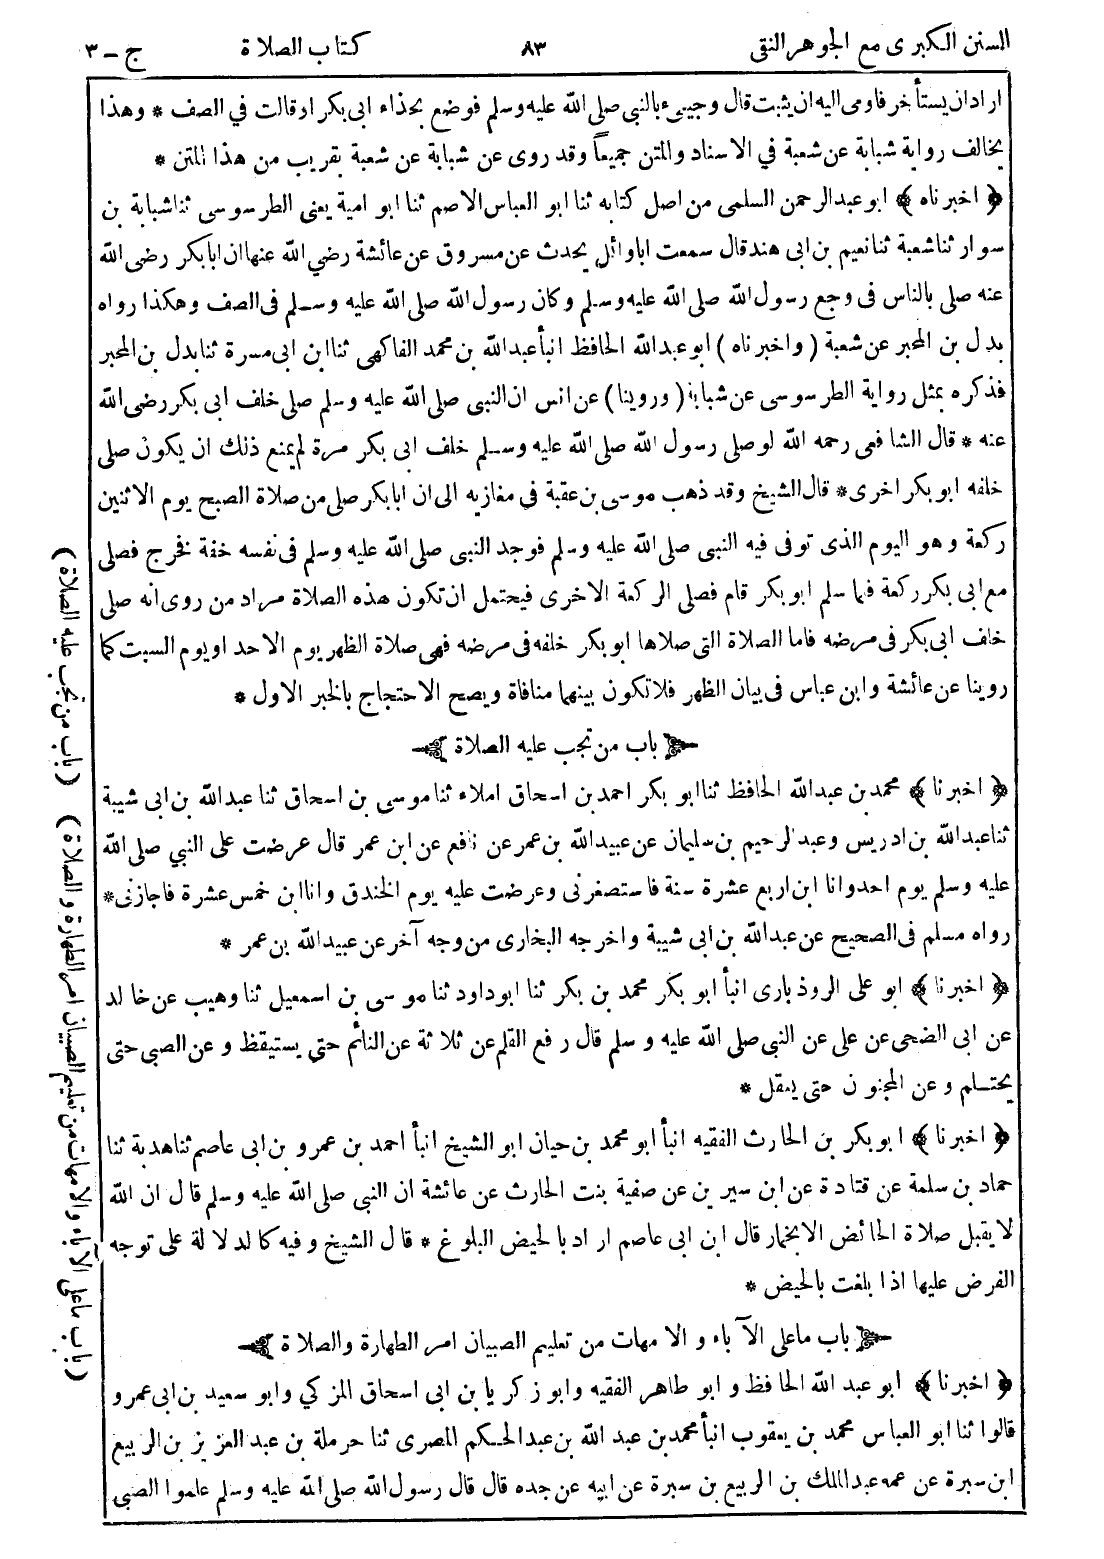 السنن الكبرى مع الجوهر النقى ٨٣ كتاب الصلاة ج - ٣
اراد ان يستأخر فاومى اليه ان يثبت قال وجيىء بالنبي صلى الله عليه وسلم فوضع بحذاء ابى بكر او قالت في الصف * وهذا
يخالف رواية شبابة عن شعبة في الاسناد والمتن جميعاً وقد روى عن شبابة عن شعبة بقريب من هذا المتن *
﴿ اخبرناه ﴾ ابو عبد الرحمن السلمى من اصل كتابه ثنا ابو العباس الاصم ثنا ابو امية يعنى الطرسوسى ثنا شبابة بن
سوار ثنا شعبة ثنا نعيم بن ابى هند قال سمعت ابا وائل يحدث عن مسروق عن عائشة رضي الله عنها ان ابا بكر رضى الله
عنه صلى بالناس فى وجع رسول الله صلى الله عليه وسلم وكان رسول الله صلى الله عليه وسلم فى الصف وهكذا رواه
بدل بن المحبر عن شعبة ( واخبرناه ) ابو عبد الله الحافظ انبأ عبد الله بن محمد الفاكهى ثنا ابن ابى مسرة ثنا بدل بن المحبر
فذكره بمثل رواية الطرسوسى عن شبابة ( وروينا ) عن انس ان النبى صلى الله عليه وسلم صلى خلف ابى بكر رضى الله
عنه * قال الشافعى رحمه الله لو صلى رسول الله صلى الله عليه وسلم خلف ابى بكر مرة لم يمنع ذلك ان يكون صلى
خلفه ابو بكر اخرى * قال الشيخ وقد ذهب موسى بن عقبة في مغازيه الى ان ابا بكر صلى من صلاة الصبح يوم الاثنين
ركعة وهو اليوم الذى توفى فيه النبى صلى الله عليه وسلم فوجد النبى صلى الله عليه وسلم فى نفسه خفة فخرج فصلى
مع ابى بكر ركعة فلما سلم ابو بكر قام فصلى الركعة الاخرى فيحتمل ان تكون هذه الصلاة مراد من روى انه صلى
خلف ابى بكر فى مرضه فاما الصلاة التى صلاها ابو بكر خلفه فى مرضه فهى صلاة الظهر يوم الاحد او يوم السبت كما
روينا عن عائشة وابن عباس فى بيان الظهر فلا تكون بينهما منافاة ويصح الاحتجاج بالخبر الاول *
باب من تجب عليه الصلاة
﴿ اخبرنا ﴾ محمد بن عبد الله الحافظ ثنا ابو بكر احمد بن اسحاق املاء ثنا موسى بن اسحاق ثنا عبد الله بن ابى شيبة
ثنا عبد الله بن ادريس وعبد الرحيم بن سليمان عن عبيد الله بن عمر عن نافع عن ابن عمر قال عرضت على النبي صلى الله
عليه وسلم يوم احد وانا ابن اربع عشرة سنة فاستصغرنى وعرضت عليه يوم الخندق وانا ابن خمس عشرة فاجازنى *
رواه مسلم فى الصحيح عن عبد الله بن ابى شيبة واخرجه البخارى من وجه آخر عن عبيد الله بن عمر *
﴿ اخبرنا ﴾ ابو على الروذبارى انبأ ابو بكر محمد بن بكر ثنا ابو داود ثنا موسى بن اسمعيل ثنا وهيب عن خالد
عن ابى الضحى عن على عن النبى صلى الله عليه وسلم قال رفع القلم عن ثلاثة عن النائم حتى يستيقظ وعن الصبى حتى
يحتلم وعن المجنون حتى يعقل *
﴿ اخبرنا ﴾ ابو بكر بن الحارث الفقيه انبأ ابو محمد بن حيان ابو الشيخ انبأ احمد بن عمرو بن ابى عاصم ثنا هدبة ثنا
حماد بن سلمة عن قتادة عن ابن سيرين عن صفية بنت الحارث عن عائشة ان النبى صلى الله عليه وسلم قال ان الله
لا يقبل صلاة الحائض الا بخمار قال ابن ابى عاصم اراد بالحيض البلوغ * قال الشيخ وفيه كالدلالة على توجه
الفرض عليها اذا بلغت بالحيض *
باب ما على الآباء والامهات من تعليم الصبيان امر الطهارة والصلاة
﴿ اخبرنا ﴾ ابو عبد الله الحافظ وابو طاهر الفقيه وابو زكريا بن ابى اسحاق المزكي وابو سعيد بن ابى عمرو
قالوا ثنا ابو العباس محمد بن يعقوب انبأ محمد بن عبد الله بن عبد الحكم المصرى ثنا حرملة بن عبد العزيز بن الربيع
ابن سبرة عن عمه عبد الملك بن الربيع بن سبرة عن ابيه عن جده قال قال رسول الله صلى الله عليه وسلم علموا الصبى
( باب من تجب عليه الصلاة )
( باب ما على الآباء والامهات من تعليم الصبيان امر الطهارة والصلاة )